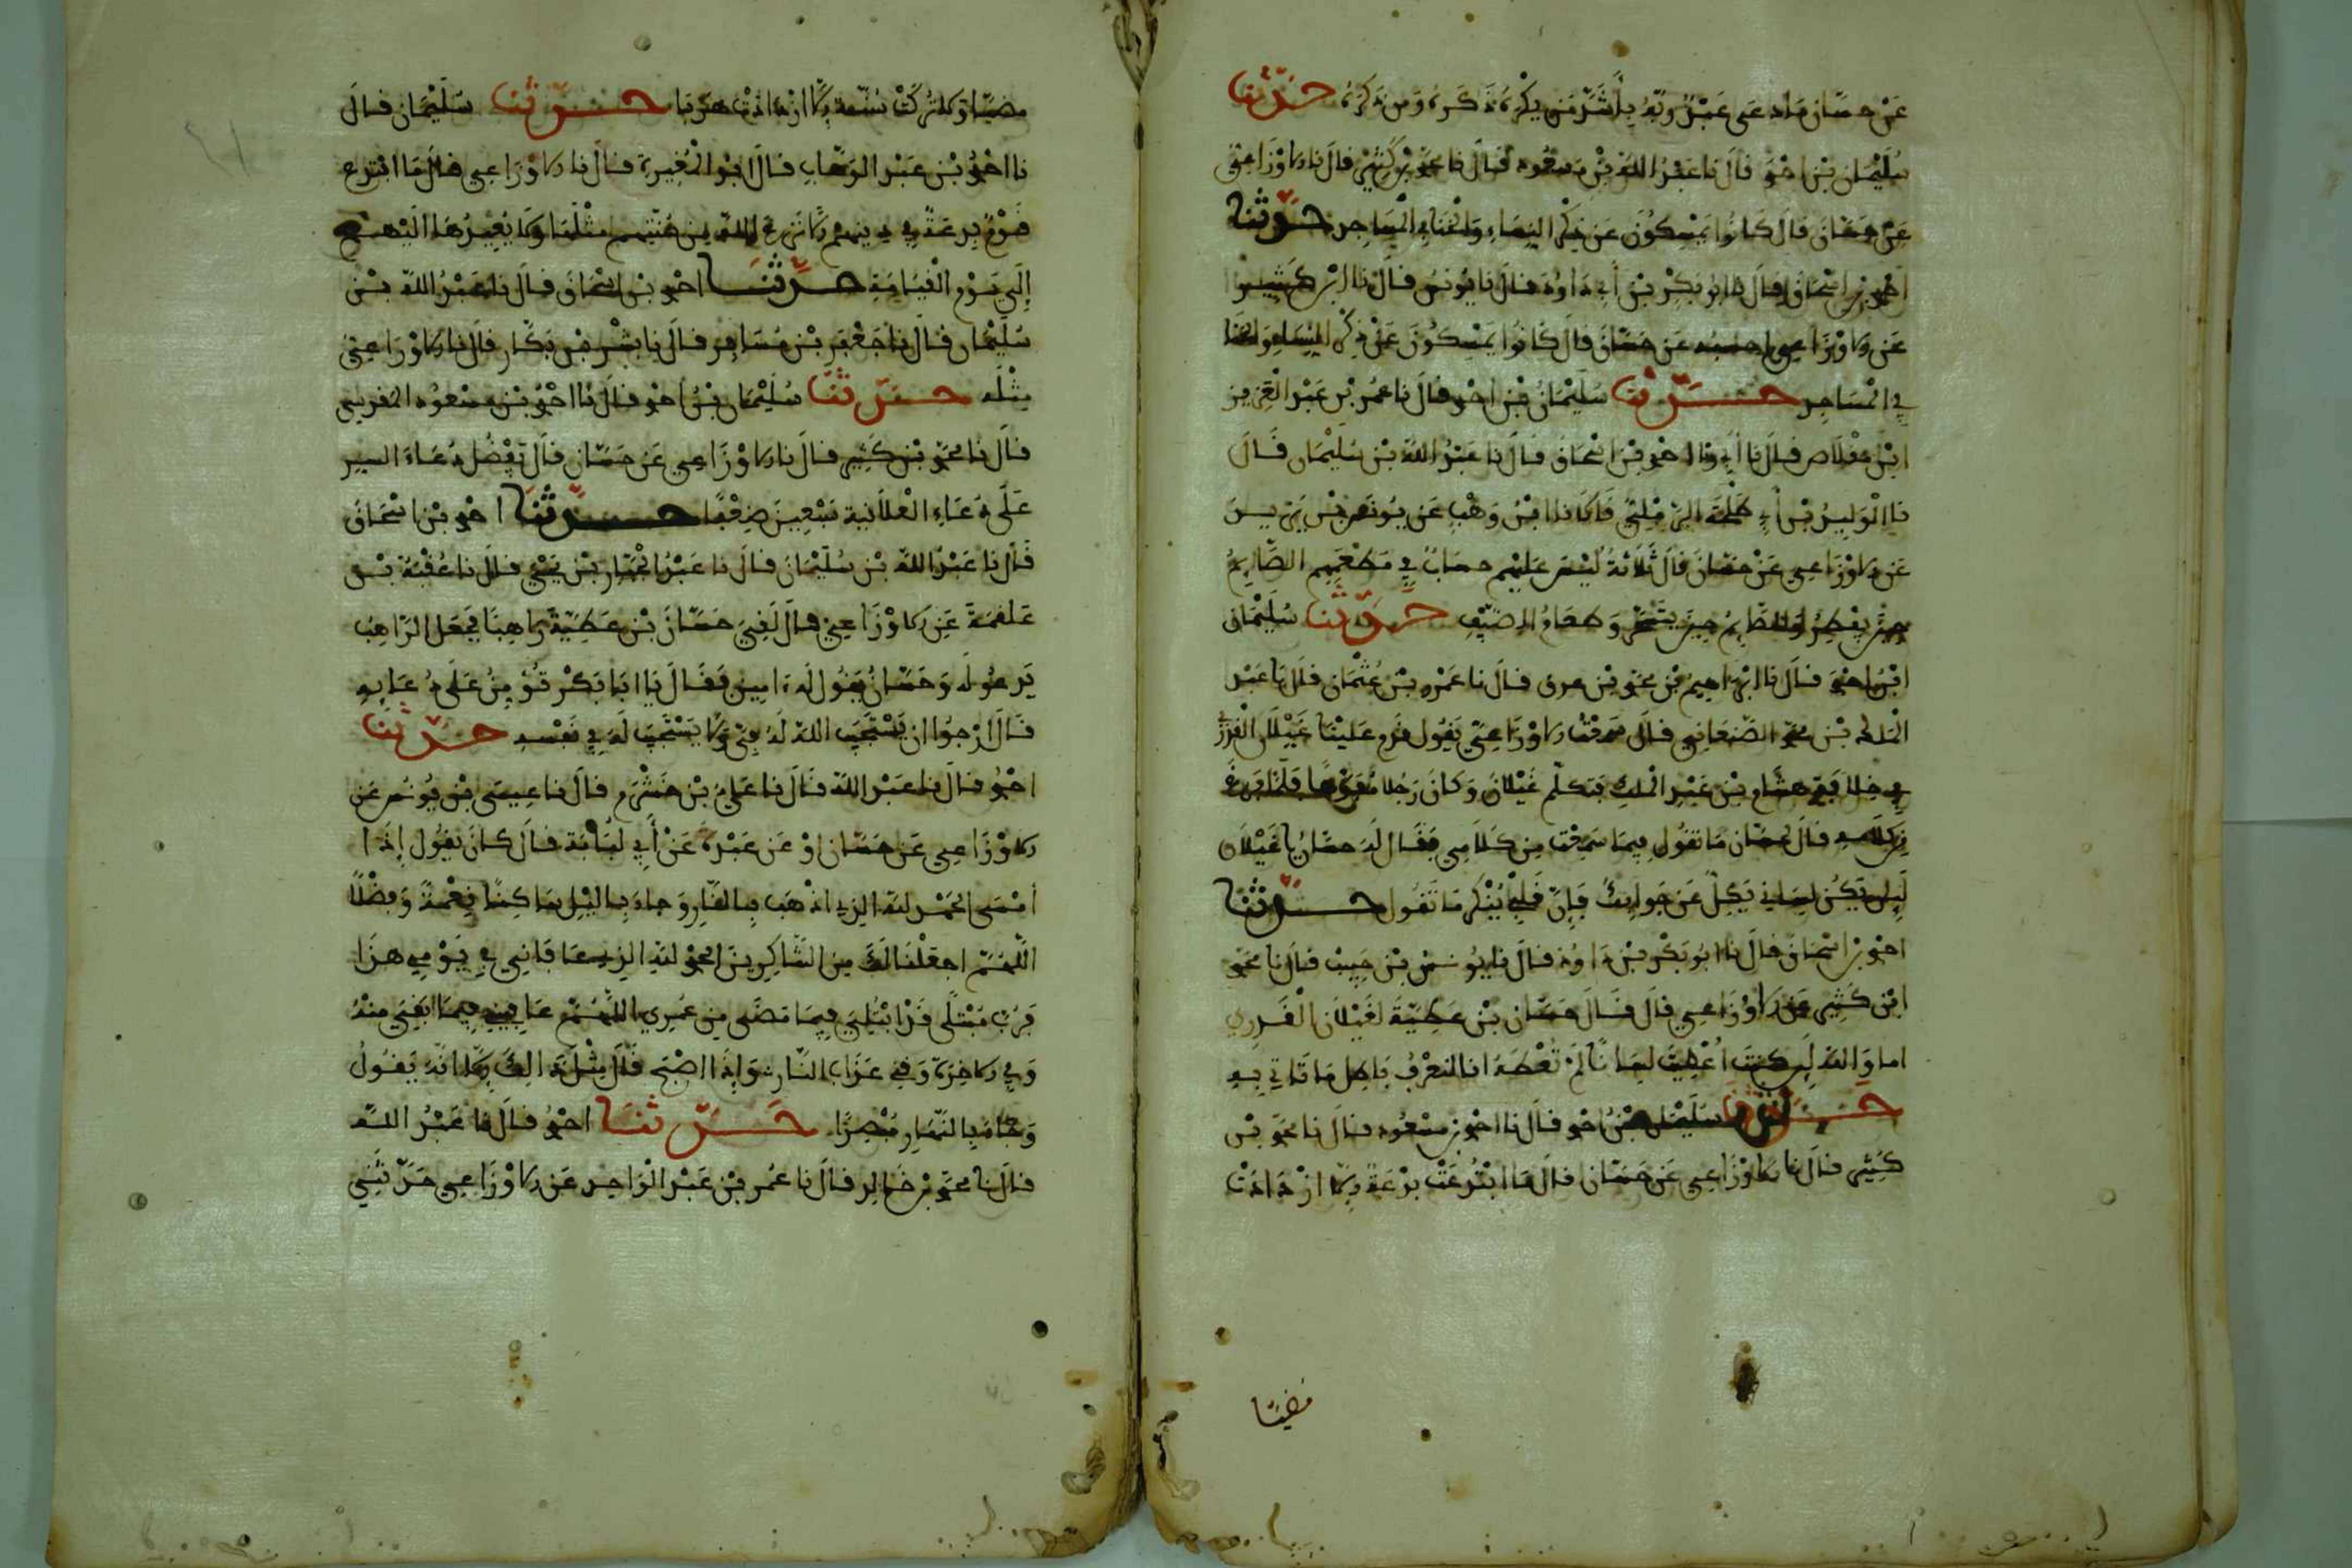 عَنْ حسّان مَا عدى عَبْدٌ ربّه بِأشَدّ مَن يكْرهُ ذَكرهُ وَمن ذكَرَهُ حدّثنا
سُلَيْمَان بْن احمد قالَ نا عَبْدُ اللهِ بْن مسْعُود قالَ نا محمّد بْن كَثِيْر قالَ نا الاوْزَاعِيّ
عَنْ حَسّانَ قالَ كَانُوا يَمْسِكُونَ عَن ذِكْر النِسَاءِ وَالخَنَا فِي الْمَسَاجِد حدّثنا
احمد بن اسْحَاق قالَ نا ابُو بَكْر بْن أبِي دَاوُد قالَ نا يُونسُ قالَ نا ابْن كَثِيْر
عَن الاوْزَاعِي احسبُه عَن حَسّانَ قالَ كَانُوا يَمْسِكُونَ عَنْ ذِكْر النِسَاءِ وَالخَنَا
فِي المسَاجِد حدّثنا سُلَيْمَانُ بْن احمد قالَ نا عمْرُ بْن عَبْد الْعَزِيز
ابْن مِقْلَاص قالَ نا أبِي ونا احمد بْن اسْحَاق قالَ نا عَبْدُ اللهِ بْن سُلَيْمَان قَالَ
نا الْوَلِيدُ بْن أبِي طَلْحَةَ الرّمْلِيّ قَالَا نا ابْنُ وَهْبٍ عَن يُونسَ بْن يَزِيدَ
عَن الاوْزَاعِي عَنْ حَسّانَ قَالَ ثَلَاثَةٌ لَيْسَ عَلَيْهم حسَابٌ فِي مَطْعَمِهم الصّائِمُ
حِيْنَ يفْطِرُ وَالصّائِمُ حِيْنَ يَتَسَحّرُ وَطعَامُ الضّيْف حدّثنا سُلَيْمَان
ابْنُ احمد قالَ نا ابْرَاهِيمُ بْن محمد بْن عرق قالَ نا عَمْرُو بْن عُثْمَان قالَ نا عَبْدُ
الملك بْن محمد الصّنعَانِي قالَ سَمعْتُ الاوْزَاعِيّ يَقُول قَدِم عَلَيْنَا غَيْلَان الْقَدَرِي
فِي خِلَافَةِ هِشَام بْن عَبْدِ الملك فَتكلّم غَيْلَانُ وَكَانَ رَجُلا مُفَوّهًا فَلَمّا فَرغَ
مِن كَلَامهِ قالَ لحسّان مَا تقُول فِيمَا سَمِعْتَ مِن كَلَامِي فَقَال لَهُ حسّانُ يا غَيْلَان
إنْ يَكُن لِسَانِي يَكِلُّ عَن جَوابِكَ فَإنّ قَلْبِي يُنْكِرُ مَا تَقُول حدّثنا
احمد بن اسْحَاقَ قالَ نا ابُو بَكْر بْن دَاوُد قالَ نا يُونس بْن حَبِيب قالَ نا محمّد
ابْن كَثِيْر عَن الاوْزَاعِي قالَ قَالَ حَسّان بْن عَطِيّةَ لغَيْلَانَ الْقَدَرِي
اما وَاللهِ لَئِن كنتَ اُعْطِيتَ لسَانًا لَمْ نُعْطَهُ انا لنعْرِفُ بَاطِل مَا تَاتِي بِه
حدّثنا سُلَيْمَان بْنُ احمد قالَ نا احمد بن مسْعُود قالَ نا محمّد بْن
كَثِيْر قالَ نا الاوْزَاعِي عَن حَسّان قالَ مَا ابْتُدِعَتْ بِدْعَةٌ الّا ازْدَادَتْ
مضيّا
مضيّا وَلا تُرِكَتْ سُنّة الّا ازْدَادَتْ هَرَبا حدّثنا سُلَيْمَان قالَ
نا احمدُ بْن عَبْد الوَهّاب قالَ نا ابُو الْمُغِيرَة قالَ نا الاوْزَاعِي قالَ مَا ابْتدع
قَوْمٌ بِدعَةً فِي دينهم الّا نَزعَ الله مِن سُنّتهم مثْلَهَا وَلَا يُعِيدُهَا الَيْهِم
إلَى يَوْم الْقِيَامَةِ حدّثنا احمد بْن اسْحَاق قالَ نا عَبْدُ اللهِ بْن
سُلَيْمَان قالَ نا جَعْفَر بْن مُسَافِر قالَ نا بشْر بْن بَكّار قالَ نا الاوْزَاعِيّ
مِثْلَه حدّثنا سُلَيْمَان بْنُ احمد قالَ نا احمدُ بْن مسْعُود المقدسِي
قالَ نا محمّد بْن كَثِير قالَ نا الاوْزَاعِي عَن حَسّان قالَ تَفْضُل دُعَاءُ السِر
عَلَى دُعَاءِ الْعلَانِية سَبْعِينَ ضِعْفًا حدّثنا احمد بْن اسْحَاق
قَالَ نا عَبْدُ اللهِ بْن سُلَيْمَان قالَ نا عَبْدُ الجَبّار بْن يَحْيَى قالَ نا عُقْبَة بْن
عَلقمَةَ عَن الاوْزَاعِيّ قالَ لَقِيَ حَسّانَ بْن عَطِيّةَ رَاهِبًا فَجَعَل الرّاهِبُ
يَدعُو لَه وَحَسّانُ يَقُول لَهُ امِين فَقَالَ نا ابَا بَكْر تُؤمِنُ عَلَى دُعَايِهِ
قَالَ ارْجُوا ان يَسْتَجِيبَ اللهُ لَهُ فِيّ وَلا يَسْتَجِيب لَهُ فِي نَفْسِهِ حدّثنا
احمدُ قالَ نا عَبْد اللهِ قالَ نا عَلِيّ بْن خَشْرَم قالَ نا عِيسَى بْن يُونسَ عَن
الاوْزَاعِي عَن حَسّان اوْ عَن عَبْدَةَ عَنْ أبِي لُبَابَة قالَ كانَ يقُول إذَا
أمْسَى الحَمْد للهِ الذِي اذْهَبَ بِالنّهَار وَجاءَ بِاللّيْلِ سَاكِنًا نِعْمَةً وَفضْلًا
اللّهُمّ اجعَلْنَا لَكَ مِن الشّاكِرِينَ الحَمْد للهِ الذِي عافَانِي فِي يَوْمِي هذَا
فَرُبّ مُبْتَلًى قَدْ ابْتُلِيَ فِيمَا مَضَى مِن عُمِري اللّهُمّ عَافِنِي فِيمَا بَقِيَ مِنْهُ
وَفِي الاخِرَة وَقِنِي عَذَاب النّار وَإذَا اصْبَحَ قالَ مِثْلَ ذَالِكَ الّا انّهُ يَقُولُ
وَجَاءَ بِالنّهَار مُبْصِرًا حدّثنا احمدُ قالَ نا عَبْدُ اللّه
قالَ نا محمّد بْن خَالِد قالَ نا عمُر بْن عَبْد الْوَاحِد عَن الاوْزَاعِي حَدّثَنِي